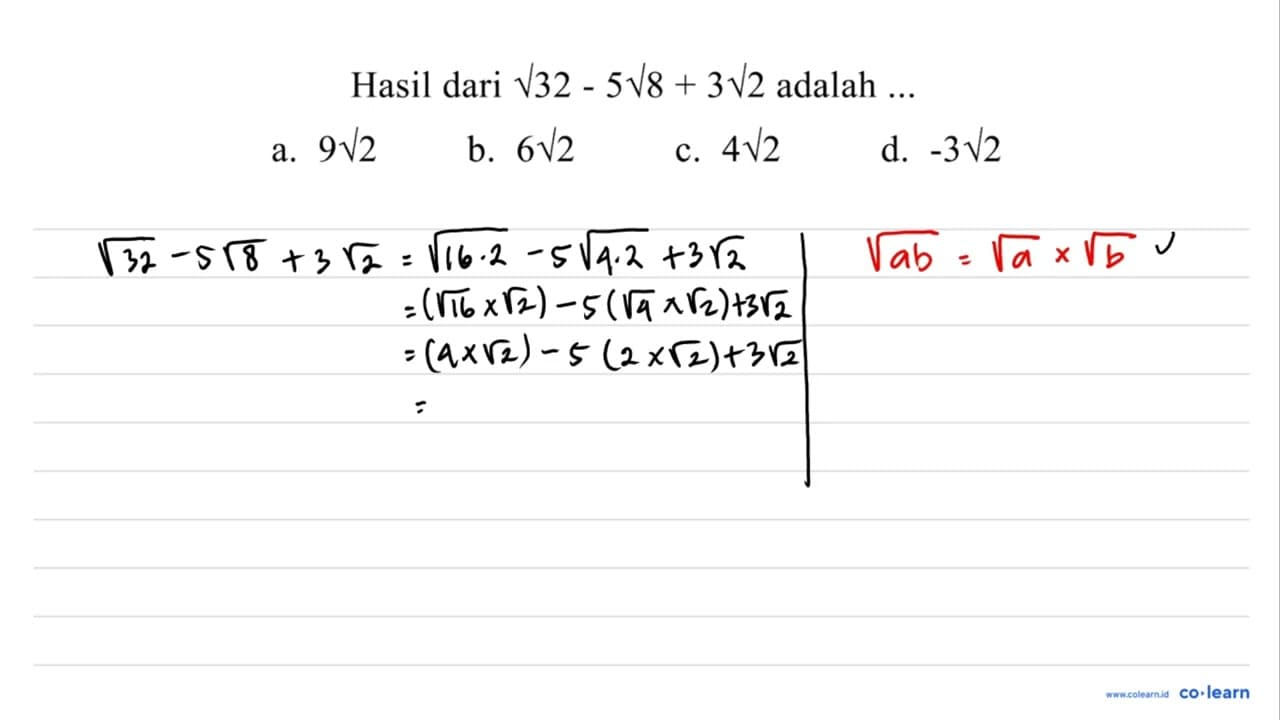 Hasil dari √32 - 5√8 + 3√2 adalah ...
a. 9√2 b. 6√2 c. 4√2 d. -3√2
√32 - 5√8 + 3√2 = √16·2 - 5√4·2 + 3√2
= (√16 × √2) - 5 (√4 × √2) + 3√2
= (4 × √2) - 5 (2 × √2) + 3√2
=
√ab = √a × √b ✓
www.colearn.id co·learn